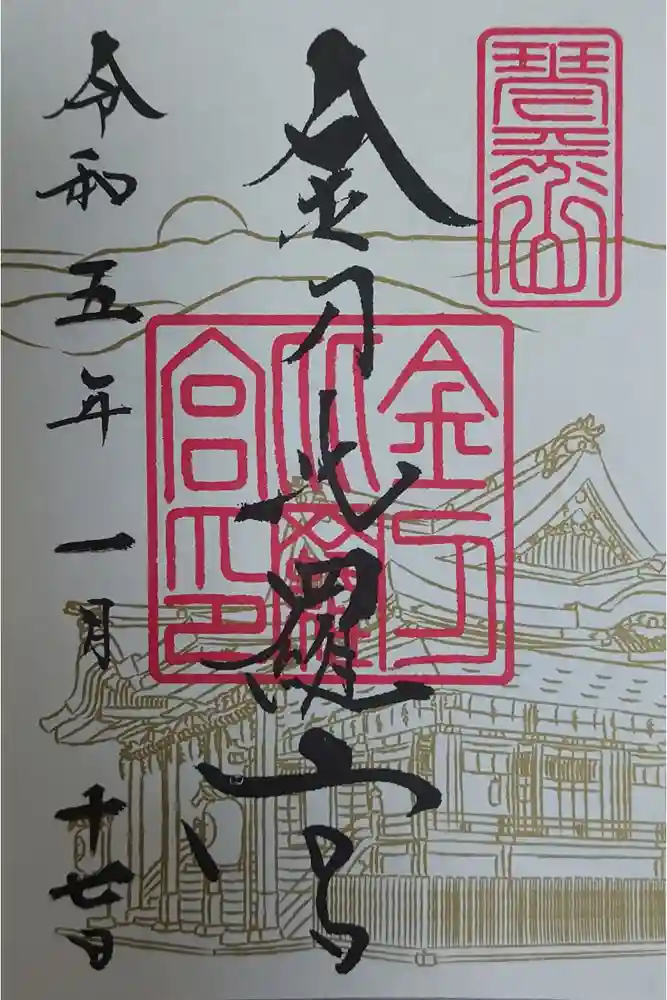 琴平山
金刀比羅宮
金刀
比羅
宮印
令和五年一月十七日